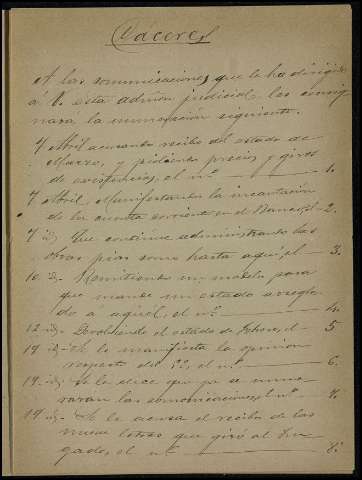 Caceres
A las comunicaciones que le ha dirigido
á V. esta admon judicial, les consig
nará la numeración siguiente.
7 Abril acusando recibo del estado de
Marzo, y pidiendo precios y giros
de existencias, el nº 1.
7 Abril, Manifestando la incautación
de la cuenta corriente en el Banco, el 2.
7 id. Que continue administrando las
obras pias como hasta aquí, el 3.
10 id. Remitiendo un modelo para
que mande un estado arregla
do á aquel, el nº 4.
12 id. Devolviendo el estado de Febrero, el 5
19 id. Se le manifiesta la opinion
respecto del el nº 6.
19 id. Se le dice que ya se nume
raran las comunicaciones, el nº 7.
19 id. Se le acusa el recibo de las
nueve letras que giró al Juz
gado, el nº 8.